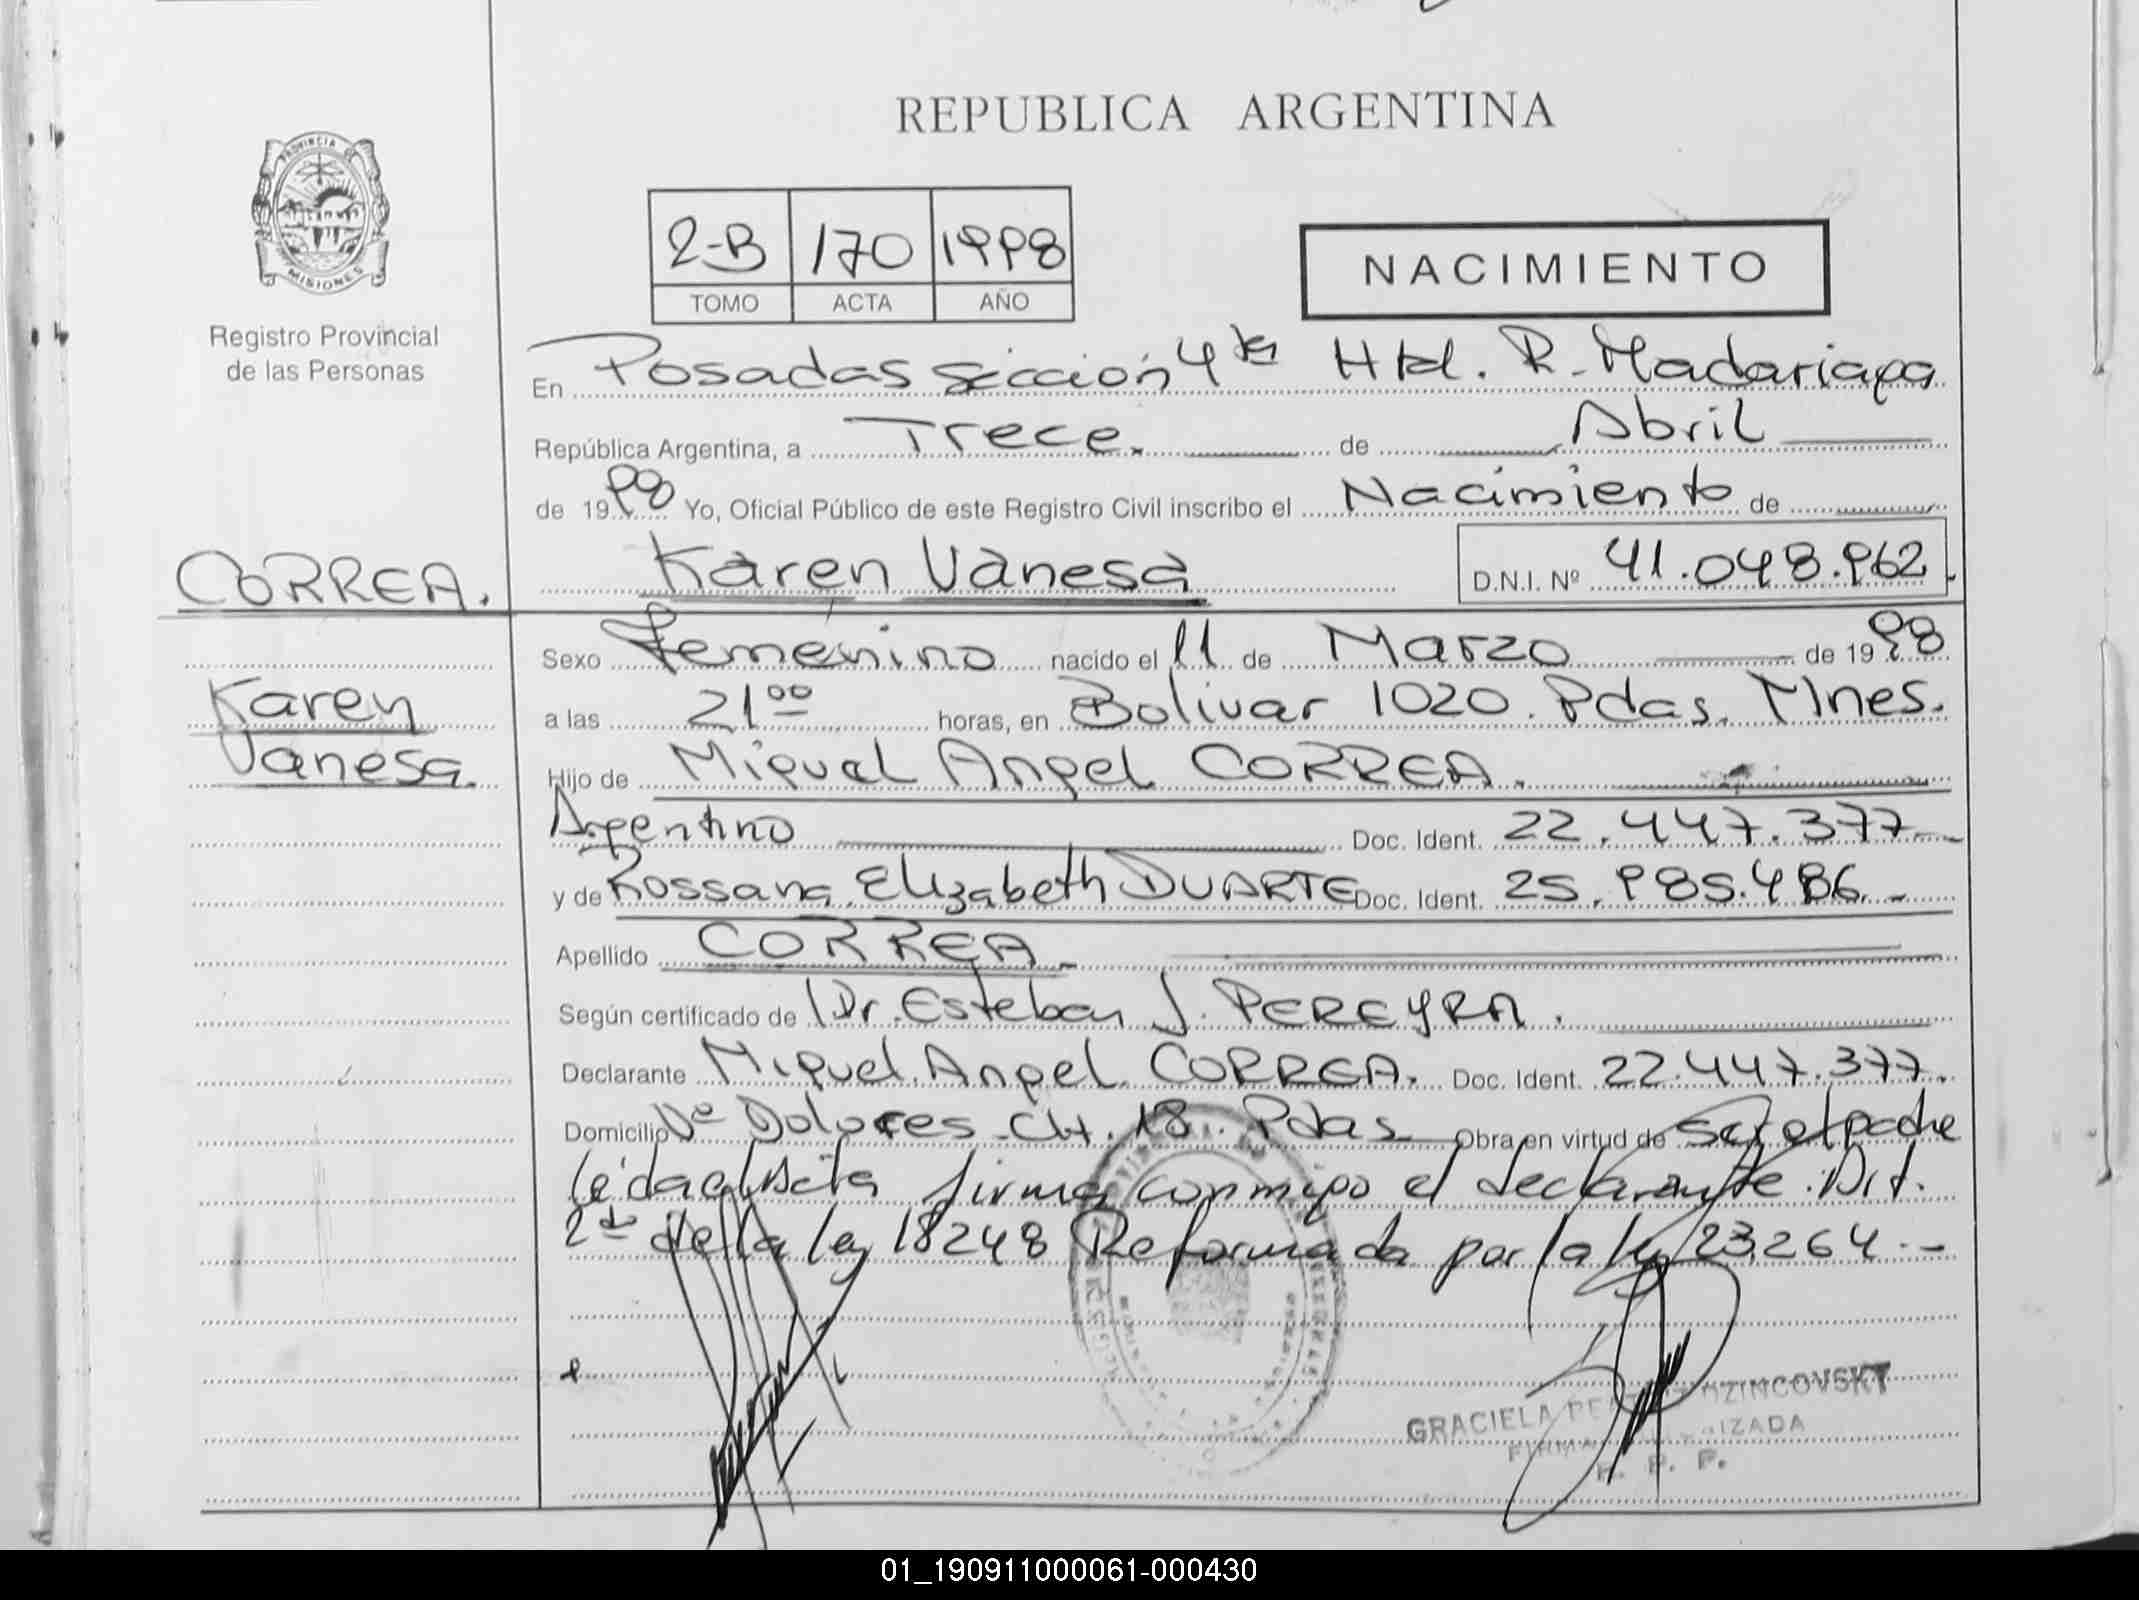 REPUBLICA ARGENTINA
PROVINCIA DE
MISIONES
Registro Provincial
de las Personas
2-B 170 1998
TOMO ACTA AÑO
NACIMIENTO
En Posadas sección 4ta Htal. R. Madariaga
República Argentina, a Trece. de Abril
de 1998 Yo, Oficial Público de este Registro Civil inscribo el Nacimiento de
CORREA. Karen Vanesa D.N.I. Nº 41.048.962
Sexo Femenino nacido el 11 de Marzo de 1998
Karen
Vanesa.
a las 21⁰⁰ horas, en Bolivar 1020. Pdas. Mnes.
Hijo de Miguel Angel CORREA.
Argentino Doc. Ident. 22.447.377.-
y de Rossana Elizabeth DUARTE Doc. Ident. 25.985.486.-
Apellido CORREA-
Según certificado de Dr. Esteban J. PEREYRA.
Declarante Miguel Angel CORREA. Doc. Ident. 22.447.377.
Domicilio Vª Dolores CH. 18. Pdas Obra en virtud de
Leída el Acta firma conmigo el declarante. Art.
2do de la ley 18248 Reformada por la ley 23.264.-
GRACIELA
F. P. P.
01_190911000061-000430